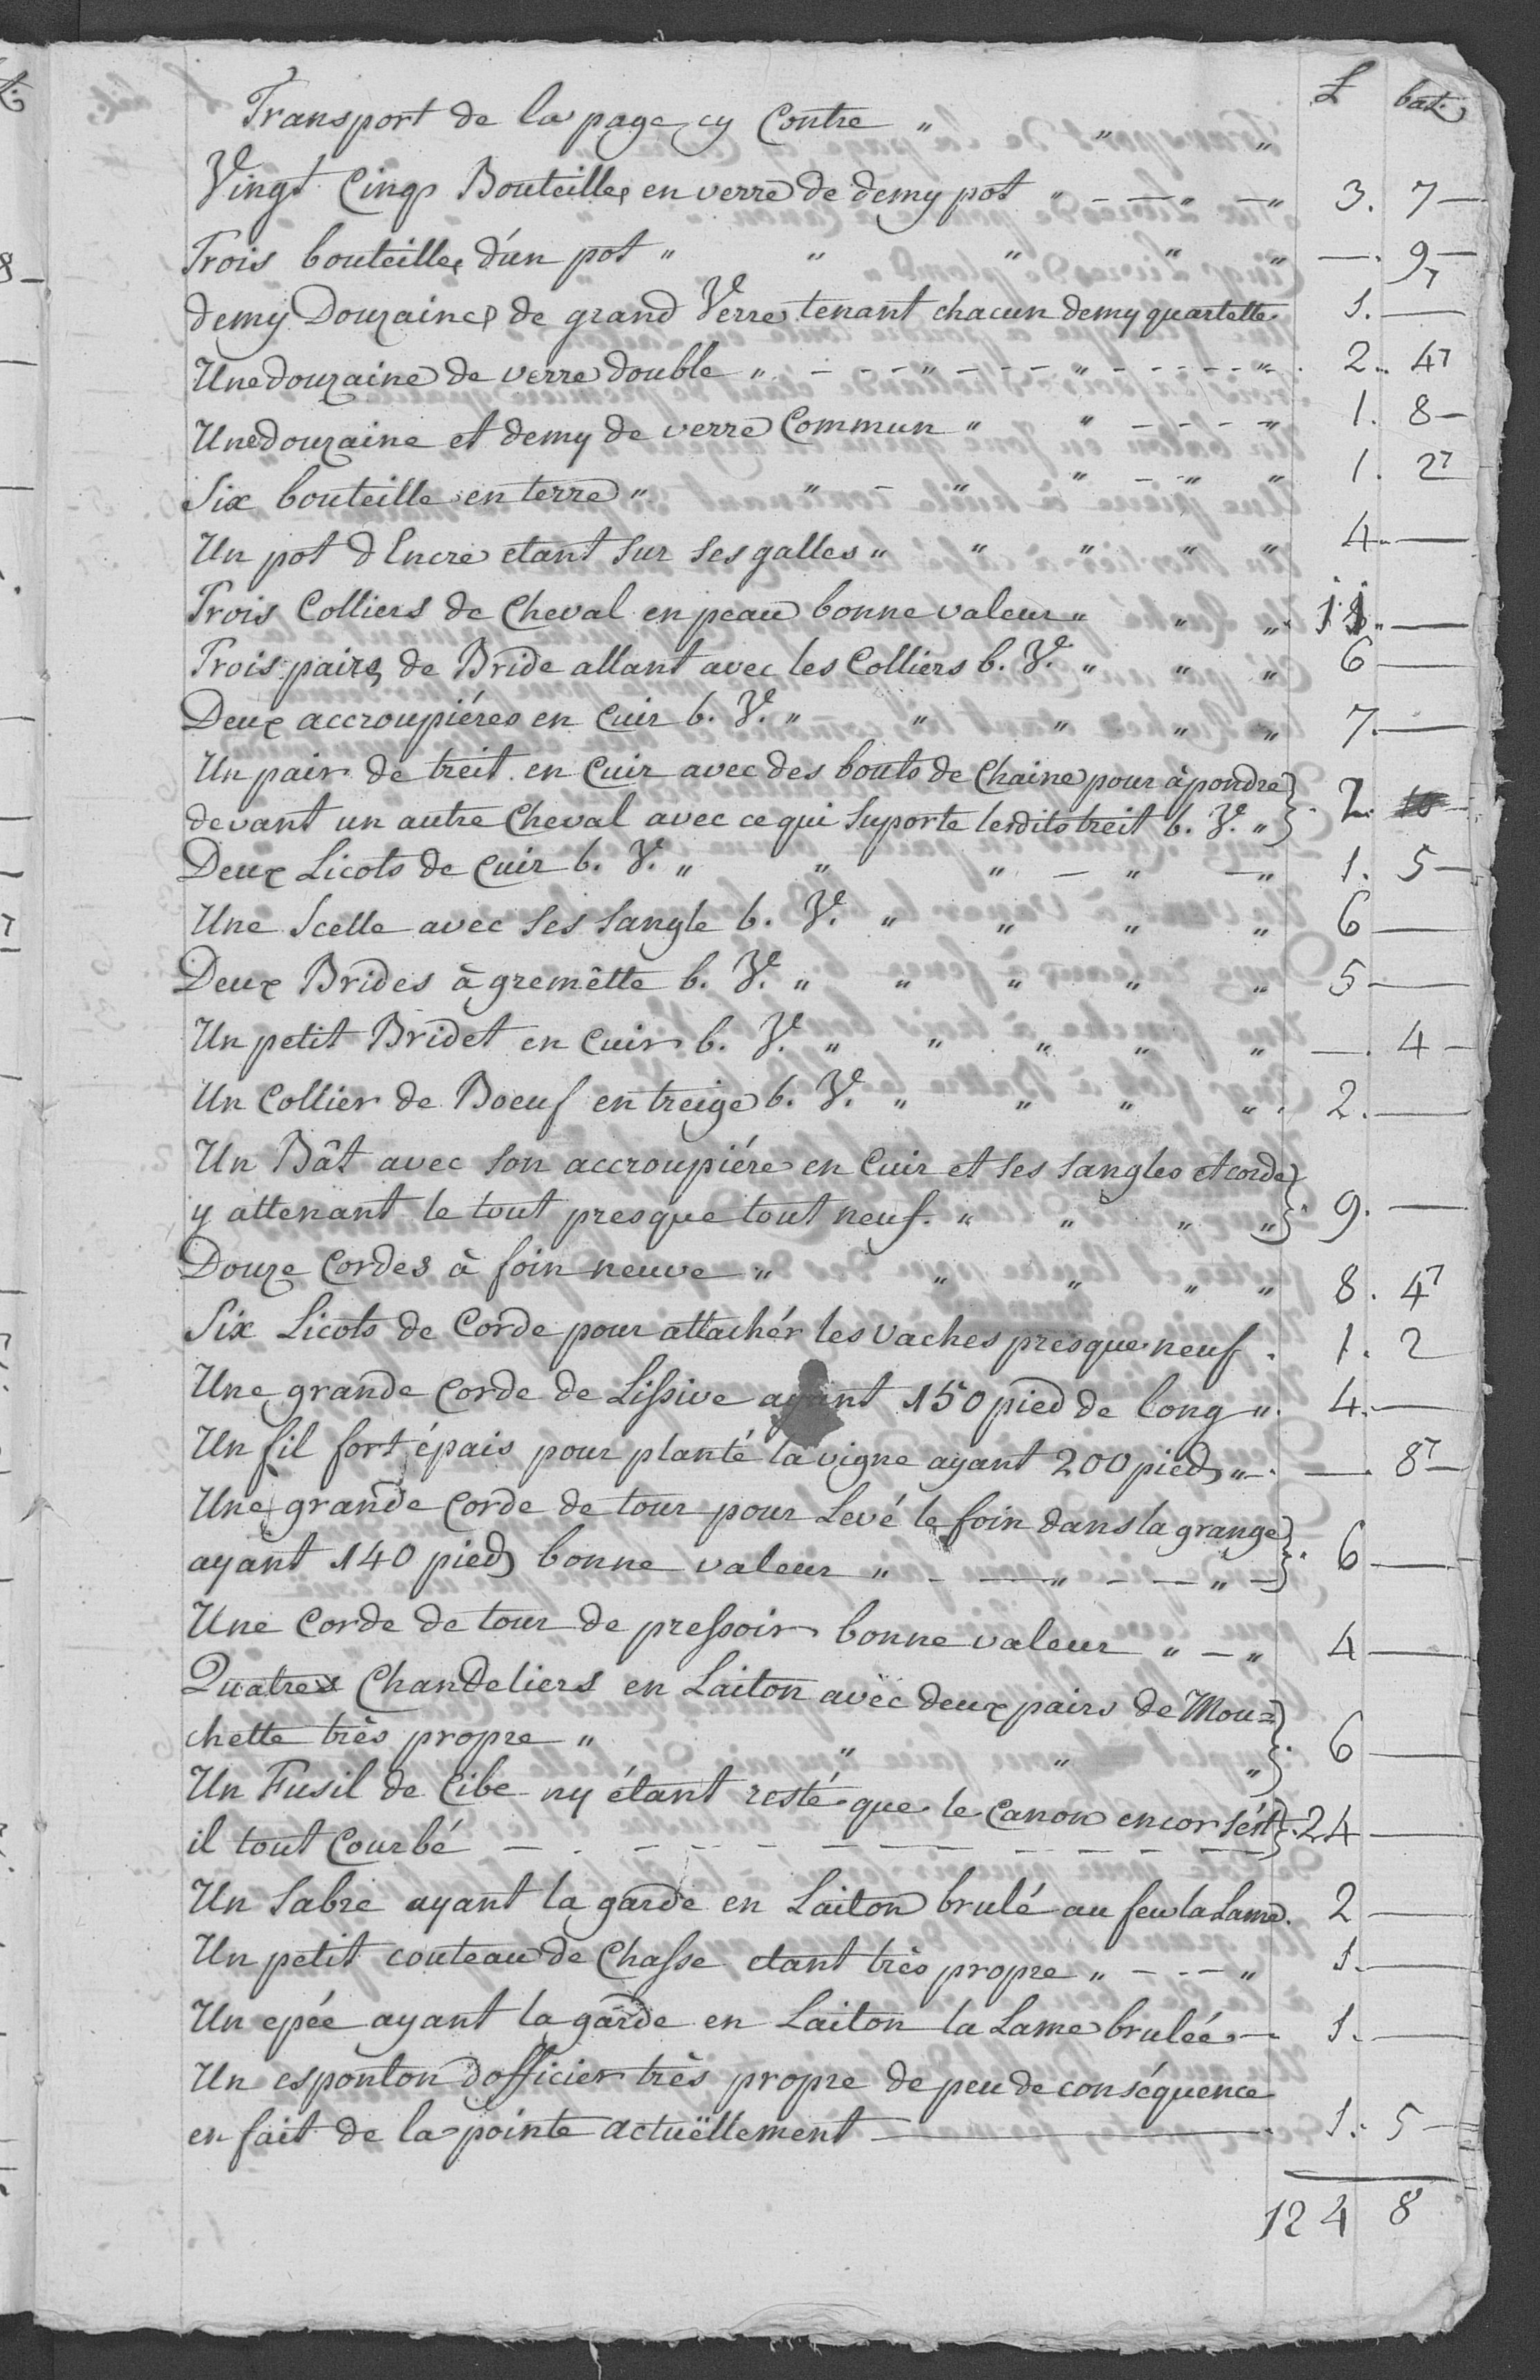 L bat.
Transport de la page cy Contre " " "
Vingt Cinq Bouteilles en verre de demy pot " - — " — " 3. 7 —
Trois bouteilles d'un pot " " " " " —. 97
demy Douzaines de grand Verre tenant chacun demy quartette 1. —
Une douzaine de verre double " - - - " - - - " - - - - - " 2. 47
Une douzaine et demy de verre Commun " " - - - - " 1. 8 —
Six bouteille en terre " " - " " - " " 1. 27
Un pot d'Encre etant sur ses galles " " " " " 4. —
Trois Colliers de Cheval en peau bonne valeur " " " 11. —
Trois pairs de Bride allant avec les Colliers b. V. " " " 6 —
Deux accroupiéres en Cuir b. V. " " " " " 7. —
Un pair de treit en Cuir avec des bouts de Chaine pour àpondre
devant un autre Cheval avec ce qui suporte lesdits treit b. V. " } 2. —
Deux Licots de Cuir b. V. " " " — " — " 1. 5 —
Une Scelle avec ses sangle b. V. " " " " 6 —
Deux Brides à gremêtte b. V. " " " " " 5 —
Un petit Bridet en Cuir b. V. " " " " " —. 4 —
Un Collier de Boeuf en treige b. V. " " " " 2. —
Un Bât avec son accroupiére en Cuir et ses sangles et corde
y attenant le tout presque tout neuf. " " " " } 9. —
Douze Cordes à foin neuve " " " " " 8. 47
Six Licots de Corde pour attachér les vaches presque neuf. 1. 2
Une grande Corde de Lissive ayant 150 pied de long " 4. —
Un fil fort épais pour planté la vigne ayant 200 pieds " —. —. 87
Une grande Corde de tour pour Levé le foin dans la grange
ayant 140 pieds bonne valeur " - — " - — " — } 6 —
Une Corde de tour de pressoir bonne valeur " — " 4 —
Quatres Chandeliers en Laiton avec deux pairs de Mou=
chette très propre " " " " } 6 —
Un Fusil de Cibe ny étant resté que le Canon encor s'ést
il tout Courbé — . - - - - — — - - - — } 24 —
Un Sabre ayant la garde en Laiton brulé au feu la Lame. 2 —
Un petit couteau de Chasse etant très propre " - - — " 1. —
Un epée ayant la garde en Laiton la Lame brulée — 1. —
Un esponton d'officier très propre de peu de conséquence
en fait de la pointe actuëllement — 1. 5 —
124 8